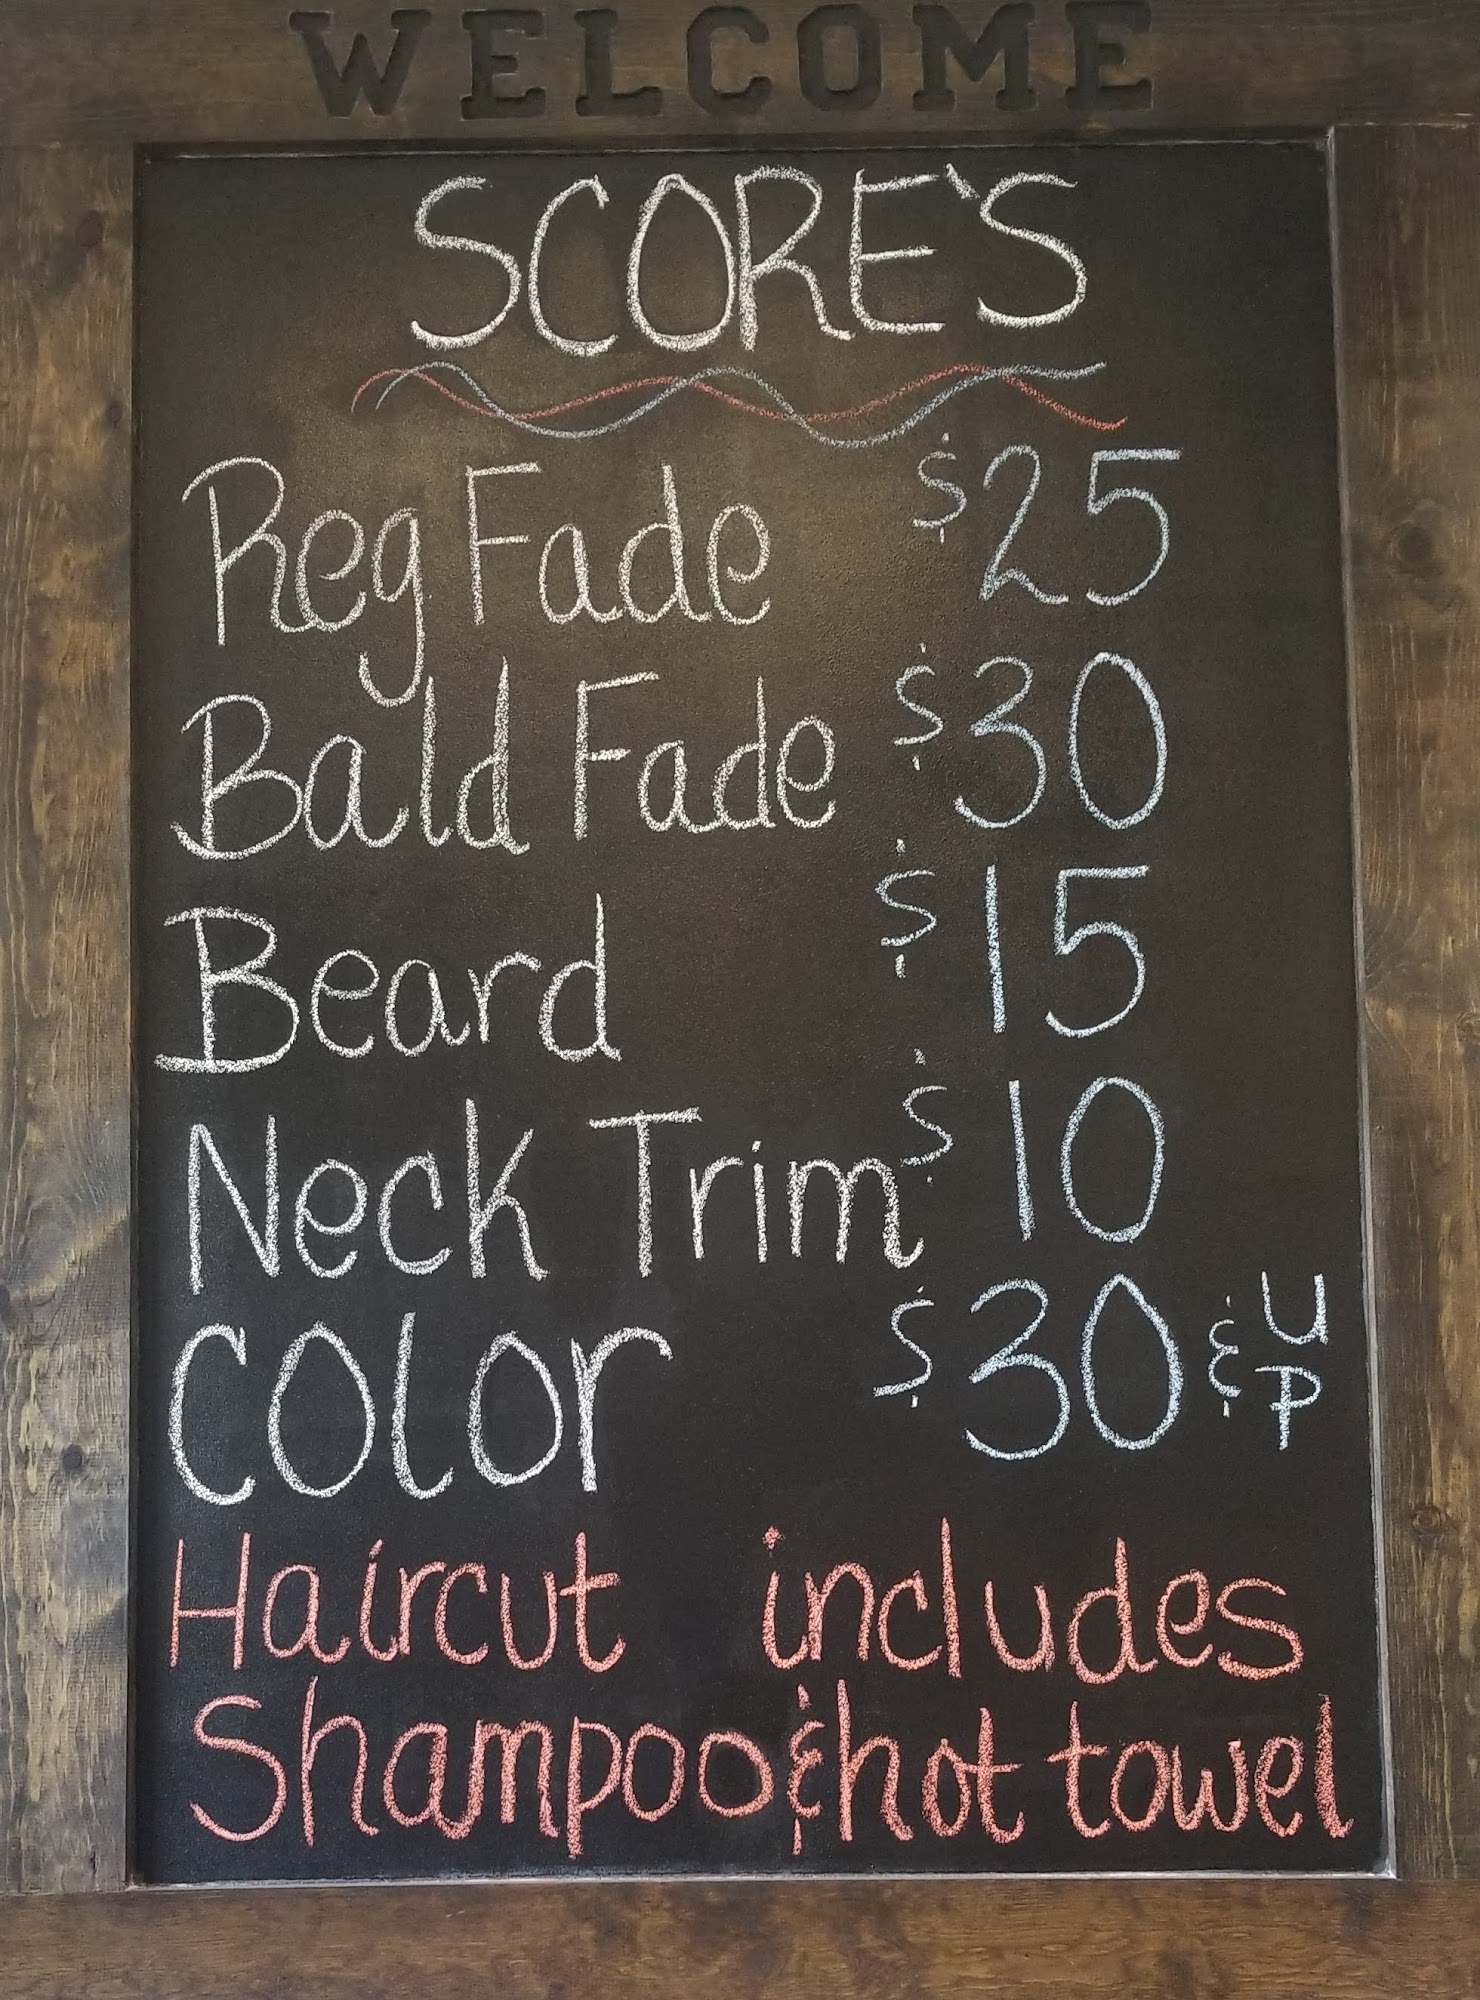 WELCOME
SCORE'S
Reg Fade $25
Bald Fade $30
Beard $15
Neck Trim $10
Color $30 & UP
Haircut includes
Shampoo & hot towel